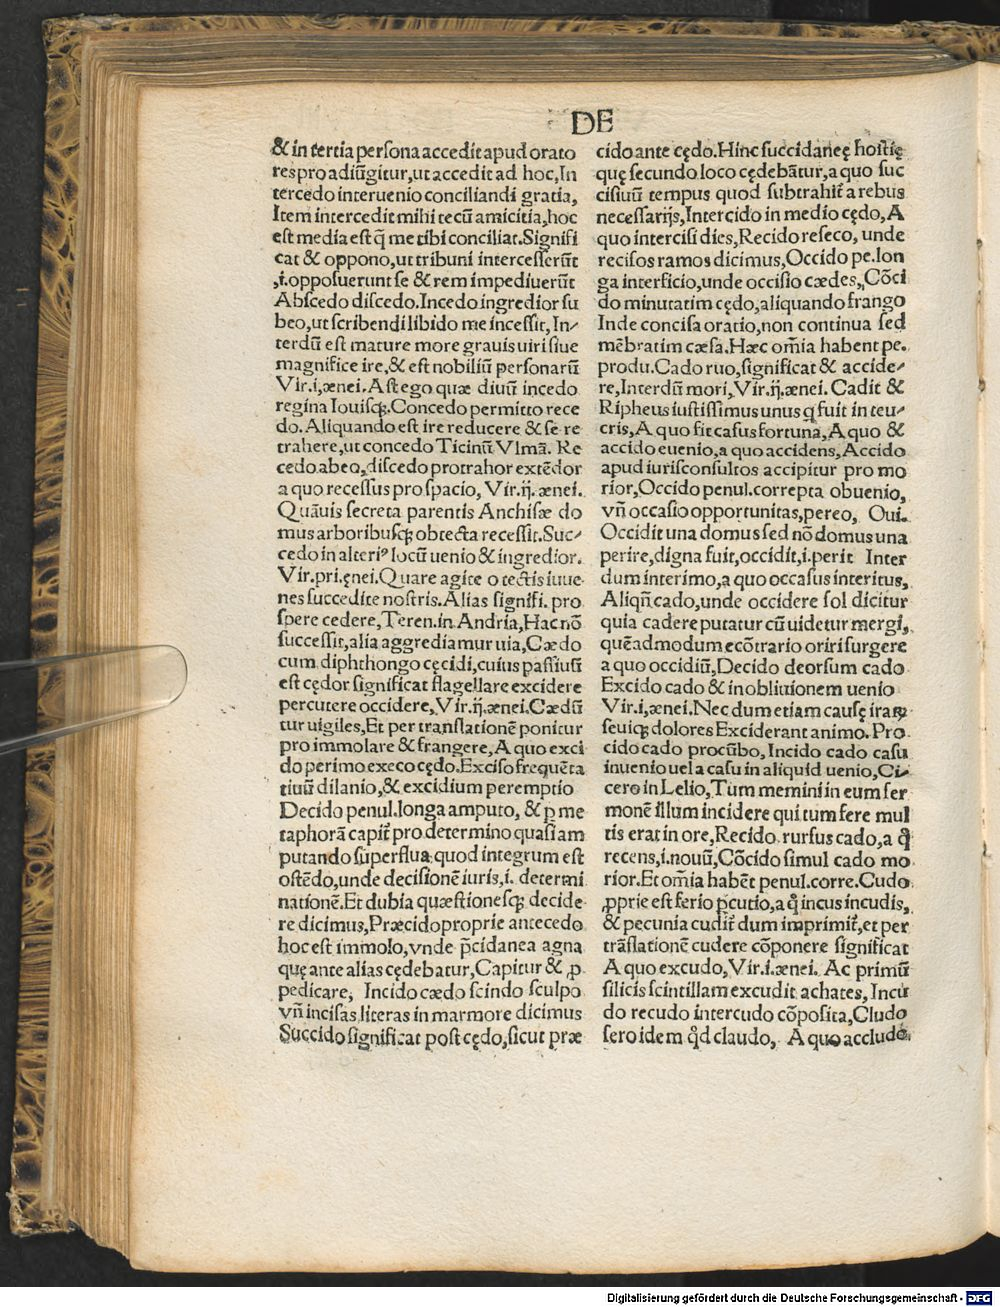 DE
& in tertia persona accedit apud orato
res pro adiũgitur, ut accedit ad hoc, In
tercedo interuenio conciliandi gratia,
Item intercedit mihi tecũ amicitia, hoc
est media est q̃ me tibi conciliat. Signifi
cat & oppono, ut tribuni intercesserũt
,i. opposuerunt se & rem impediuerũt
Abscedo discedo. Incedo ingredior su
beo, ut scribendi libido me incessit, In-
terdũ est mature more grauis uiri siue
magnifice ire, & est nobiliũ personarũ
Vir. i, ænei. Ast ego quæ diuũ incedo
regina Iouisq;. Concedo permitto rece
do. Aliquando est ire reducere & se re
trahere, ut concedo Ticinũ Vlmã. Re
cedo abeo, discedo protrahor extẽdor
a quo recessus pro spacio, Vir. ij. ænei.
Quãuis secreta parentis Anchisæ do
mus arboribusq; obtecta recessit. Suc-
cedo in alteriꝰ locũ uenio & ingredior.
Vir. pri. ęnei. Quare agite o tectis iuue
nes succedite nostris. Alias signifi. pro
spere cedere, Teren. in Andria, Hac nõ
successit, alia aggrediamur uia, Cædo
cum diphthongo cęcidi, cuius passiuũ
est cędor significat flagellare excidere
percutere occidere, Vir. ij. ænei. Cædũ
tur uigiles, Et per translationẽ ponitur
pro immolare & frangere, A quo exci
do perimo execo cędo. Exciso frequẽta
tiuũ dilanio, & excidium peremptio
Decido penul. longa amputo, & p̱ me
taphorã capit̃ pro determino quasi am
putando superflua quod integrum est
ostẽdo, unde decisionẽ iuris, i. determi
nationẽ. Et dubia quæstionesq; decide
re dicimus, Præcido proprie antecedo
hoc est immolo, vnde p̃cidanea agna
quę ante alias cędebatur, Capitur & ꝓ
pedicare, Incido cædo scindo sculpo
vñ incisas literas in marmore dicimus
Succido significat post cędo, sicut præ
cido ante cędo. Hinc succidaneę hostię
quę secundo loco cędebãtur, a quo suc
cisiuũ tempus quod subtrahit̃ a rebus
necessarijs, Intercido in medio cędo, A
quo intercisi dies, Recido reseco, unde
recisos ramos dicimus, Occido pe. lon
ga interficio, unde occisio cædes, Cõci
do minutatim cędo, aliquando frango
Inde concisa oratio, non continua sed
mẽbratim cæsa. Hæc om̃ia habent pe.
produ. Cado ruo, significat & accide-
re, Interdũ mori, Vir. ij. ænei. Cadit &
Ripheus iustissimus unus q fuit in teu-
cris, A quo fit casus fortuna, A quo &
accido euenio, a quo accidens, Accido
apud iurisconsultos accipitur pro mo
rior, Occido penul. correpta obuenio,
vñ occasio opportunitas, pereo, Oui.
Occidit una domus sed nõ domus una
perire, digna fuit, occidit, i. perit Inter
dum interimo, a quo occasus interitus,
Aliqñ cado, unde occidere sol dicitur
quia cadere putatur cũ uidetur mergi,
quẽadmodum ecõtrario oriri surgere
a quo occidiũ, Decido deorsum cado
Excido cado & in obliuionem uenio
Vir. i, ænei. Nec dum etiam causę iraꝝ
seuiq; dolores Exciderant animo. Pro
cido cado procũbo, Incido cado casu
inuenio uel a casu in aliquid uenio, Ci-
cero in Lelio, Tum memini in eum ser
monẽ illum incidere qui tum fere mul
tis erat in ore, Recido rursus cado, a q̊
recens, i. nouũ, Cõcido simul cado mo
rior. Et om̃ia habẽt penul. corre. Cudo
ꝓprie est ferio p̱cutio, a q̊ incus incudis,
& pecunia cudit̃ dum imprimit̃, et per
trãslationẽ cudere cõponere significat
A quo excudo, Vir. i. ænei. Ac primũ
silicis scintillam excudit achates, Incu
do recudo intercudo cõposita, Cludo
sero idem q̊d claudo, A quo accludo
Digitalisierung gefördert durch die Deutsche Forschungsgemeinschaft - DFG